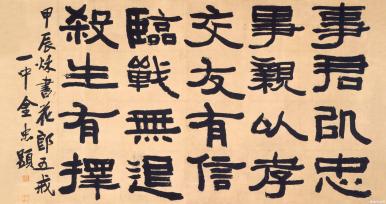 事君以忠
事親以孝
交友有信
臨戰無退
殺生有擇
甲辰秋書花郎五戒
一中金忠顯